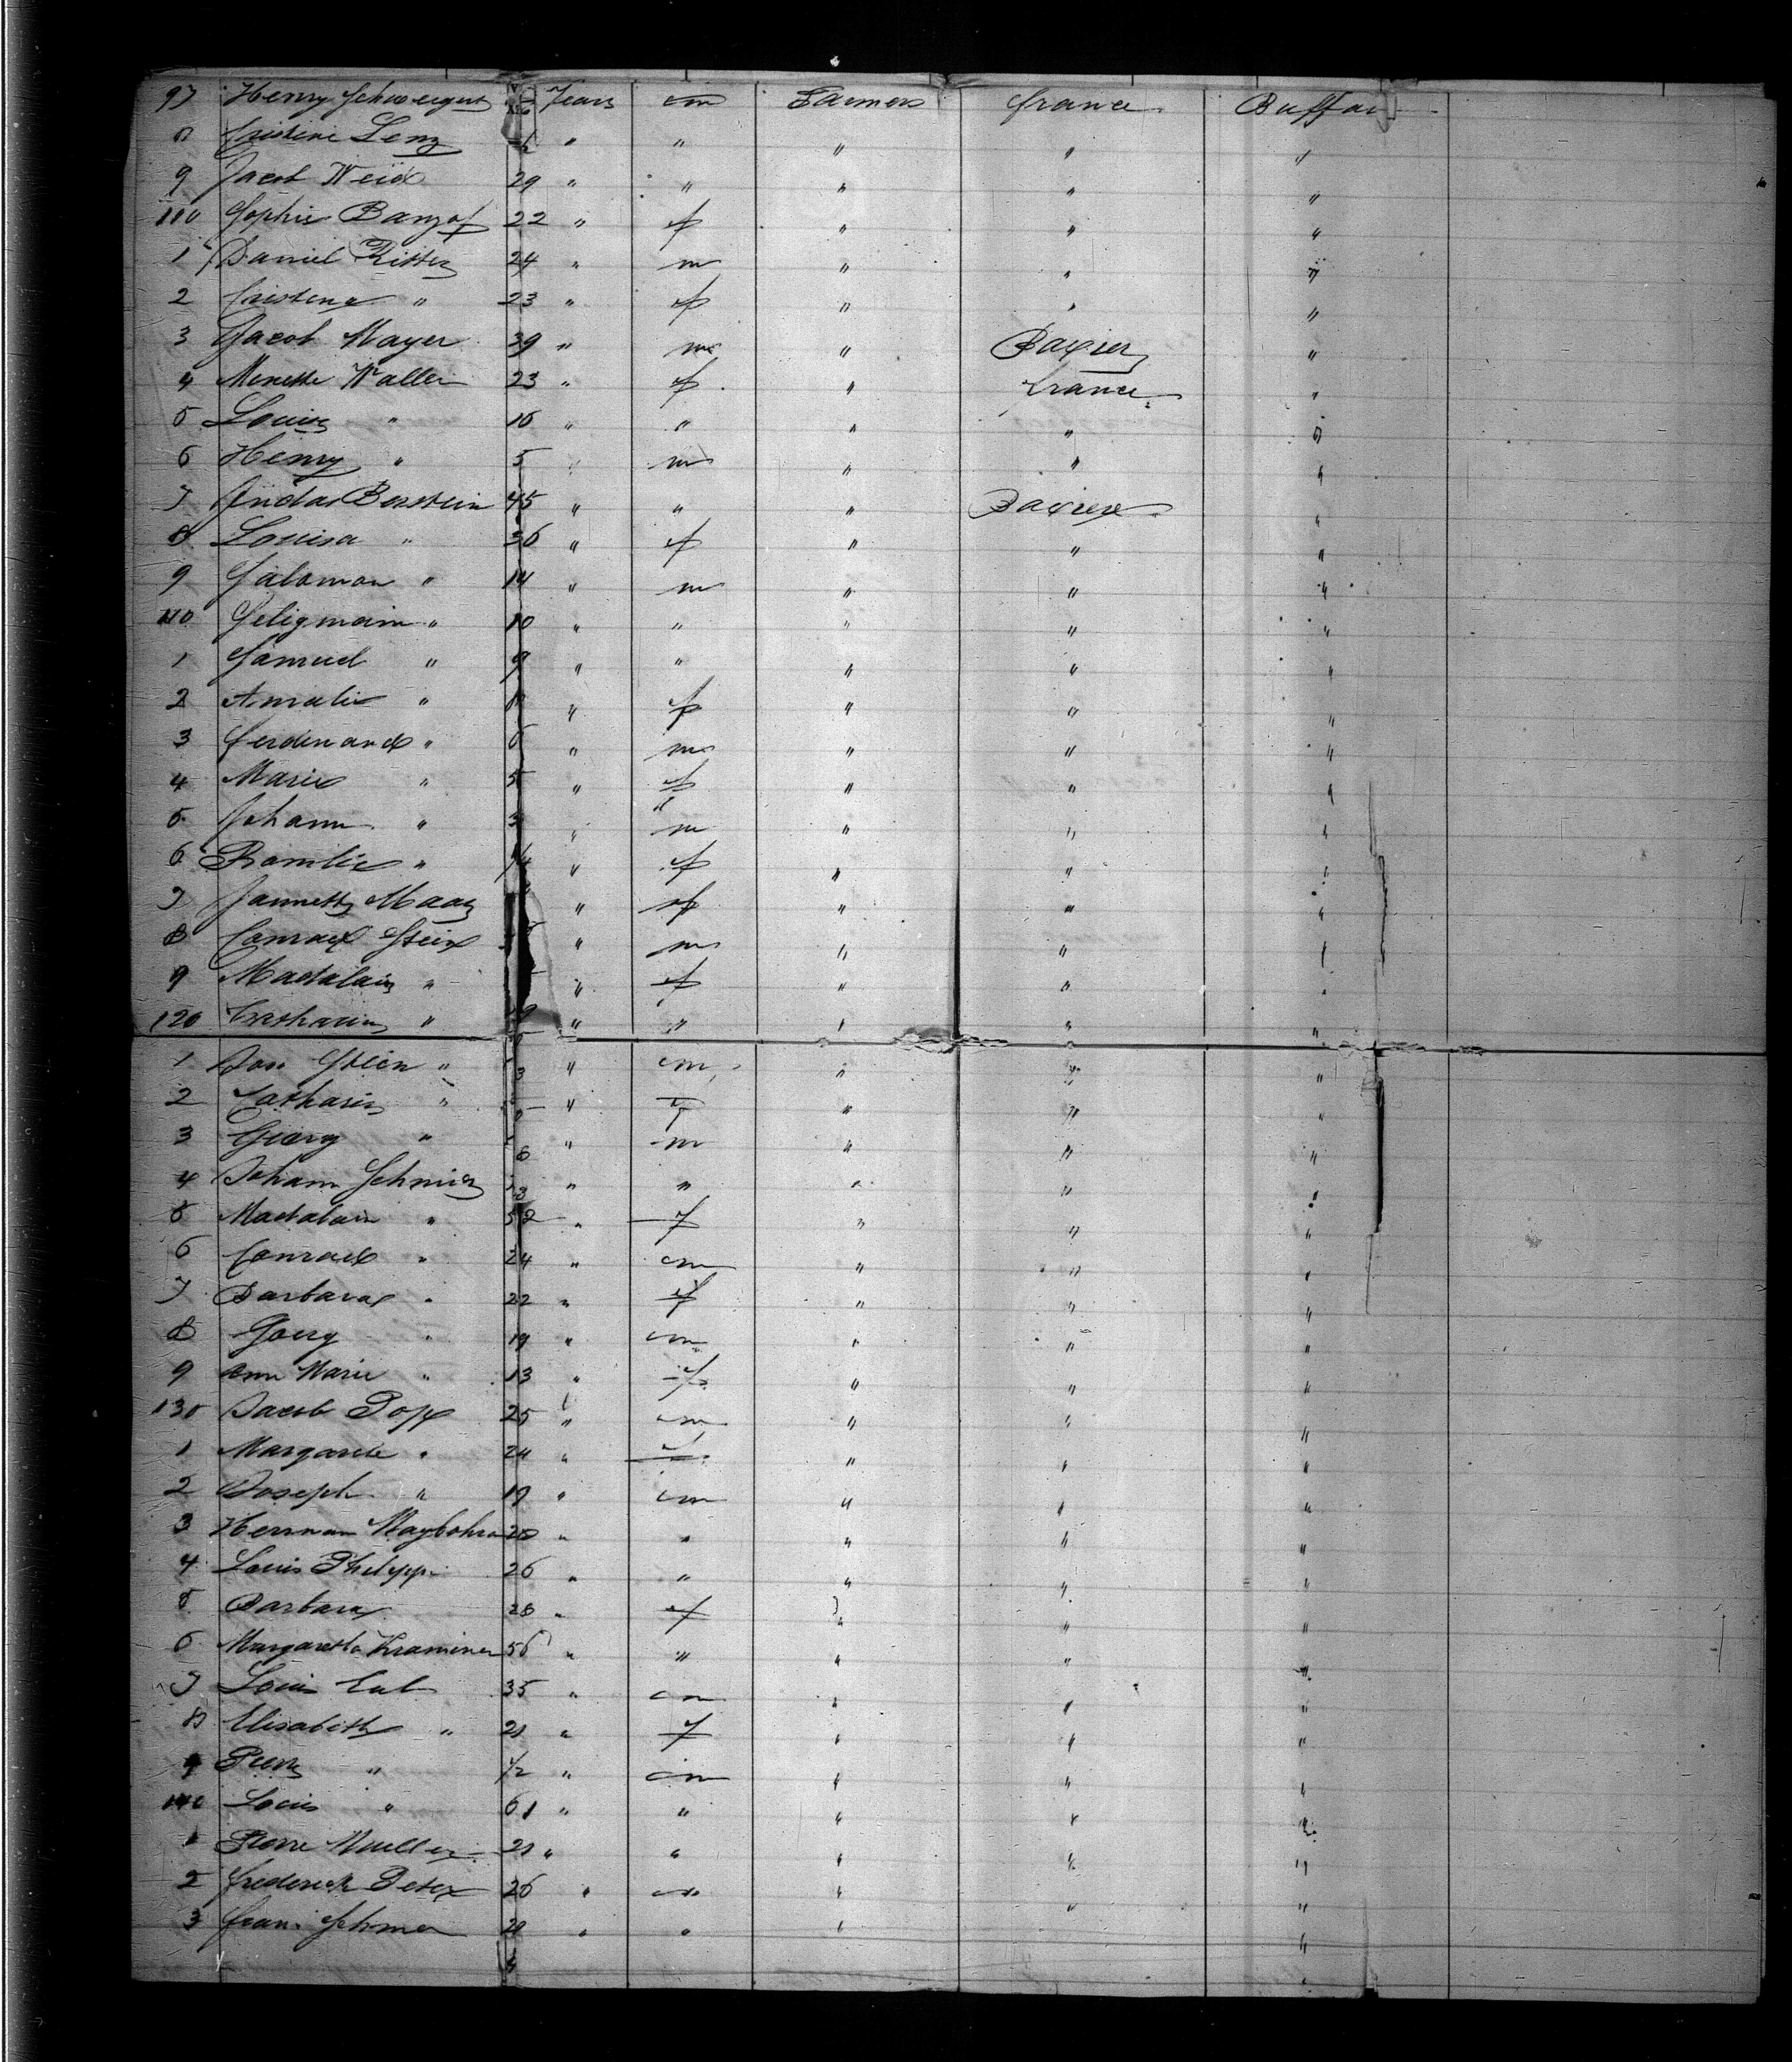 97 Henry Years m Farmers france Buffalo
8 Cristine Lenz " " " " "
9 Jacob Weid 29 " " " " "
100 Sophie Banzof 22 " f " " "
1 Daniel Ritter 24 " m " " "
2 Cristena " 23 " f " " "
3 Jacob Mayer 39 " m " Baxier "
4 Walter 23 " f " france "
5 Louise " 16 " " " " "
6 Henry " 5 " m " " "
7 Berstein 45 " " " Baxiere "
8 Louisa " 36 " f " " "
9 Salomon " 14 " m " " "
110 Seligmain " 10 " " " " "
1 Samuel " 9 " " " " "
2 Amalie " " f " " "
3 ferdinand " 6 " m " " "
4 Marie " 5 " f " " "
5 Johann " 3 " m " " "
6 " " f " " "
7 Jannette Maas " f " " "
8 Conrad Stein " m " " "
9 Madalain " " f " " "
120 Catharin " " " " " "
1 Stein " 3 " m " " "
2 Catharin " " f " " "
3 Georg " 6 " m " " "
4 Johann Schmid 3 " " " " "
5 Madalain " 52 " f " " "
6 Conrad " 24 " m " " "
7 Barbara " 22 " f " " "
8 Goerg " 19 " m " " "
9 Ann Marie " 13 " f " " "
130 Jacob Popp 25 " m " " "
1 Margarete " 24 " f " " "
2 Joseph " 19 " m " " "
3 Herrman 28 " " " " "
4 Louis Philipp 26 " " " " "
5 Barbara 28 " f " " "
6 Margaretha Kraminer 56 " " " " "
7 Louis 35 " m " " "
8 Elisabeth " 21 " f " " "
9 Pierre " 1/2 " m " " "
140 Louis " 61 " " " " "
1 Pierre Mueller 21 " " " " "
2 frederick Peter 26 " m " " "
3 " " " " "